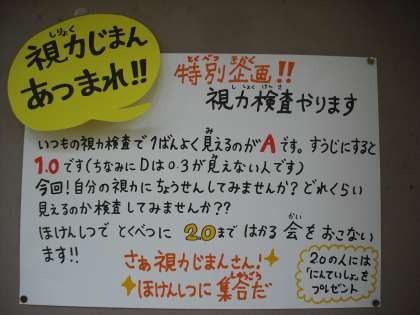 視力じまん
あつまれ!!
特別企画!!
視力検査やります
いつもの視力検査で1ばんよく見えるのがAです。すうじにすると
1.0です(ちなみにDは0.3が見えない人です)
今回!自分の視力にちょうせんしてみませんか?どれくらい
見えるのか検査してみませんか??
ほけんしつでとくべつに2.0まではかる会をおこない
ます!!
さぁ視力じまんさん!
ほけんしつに集合だ
2.0の人には
「にんていしょ」を
プレゼント